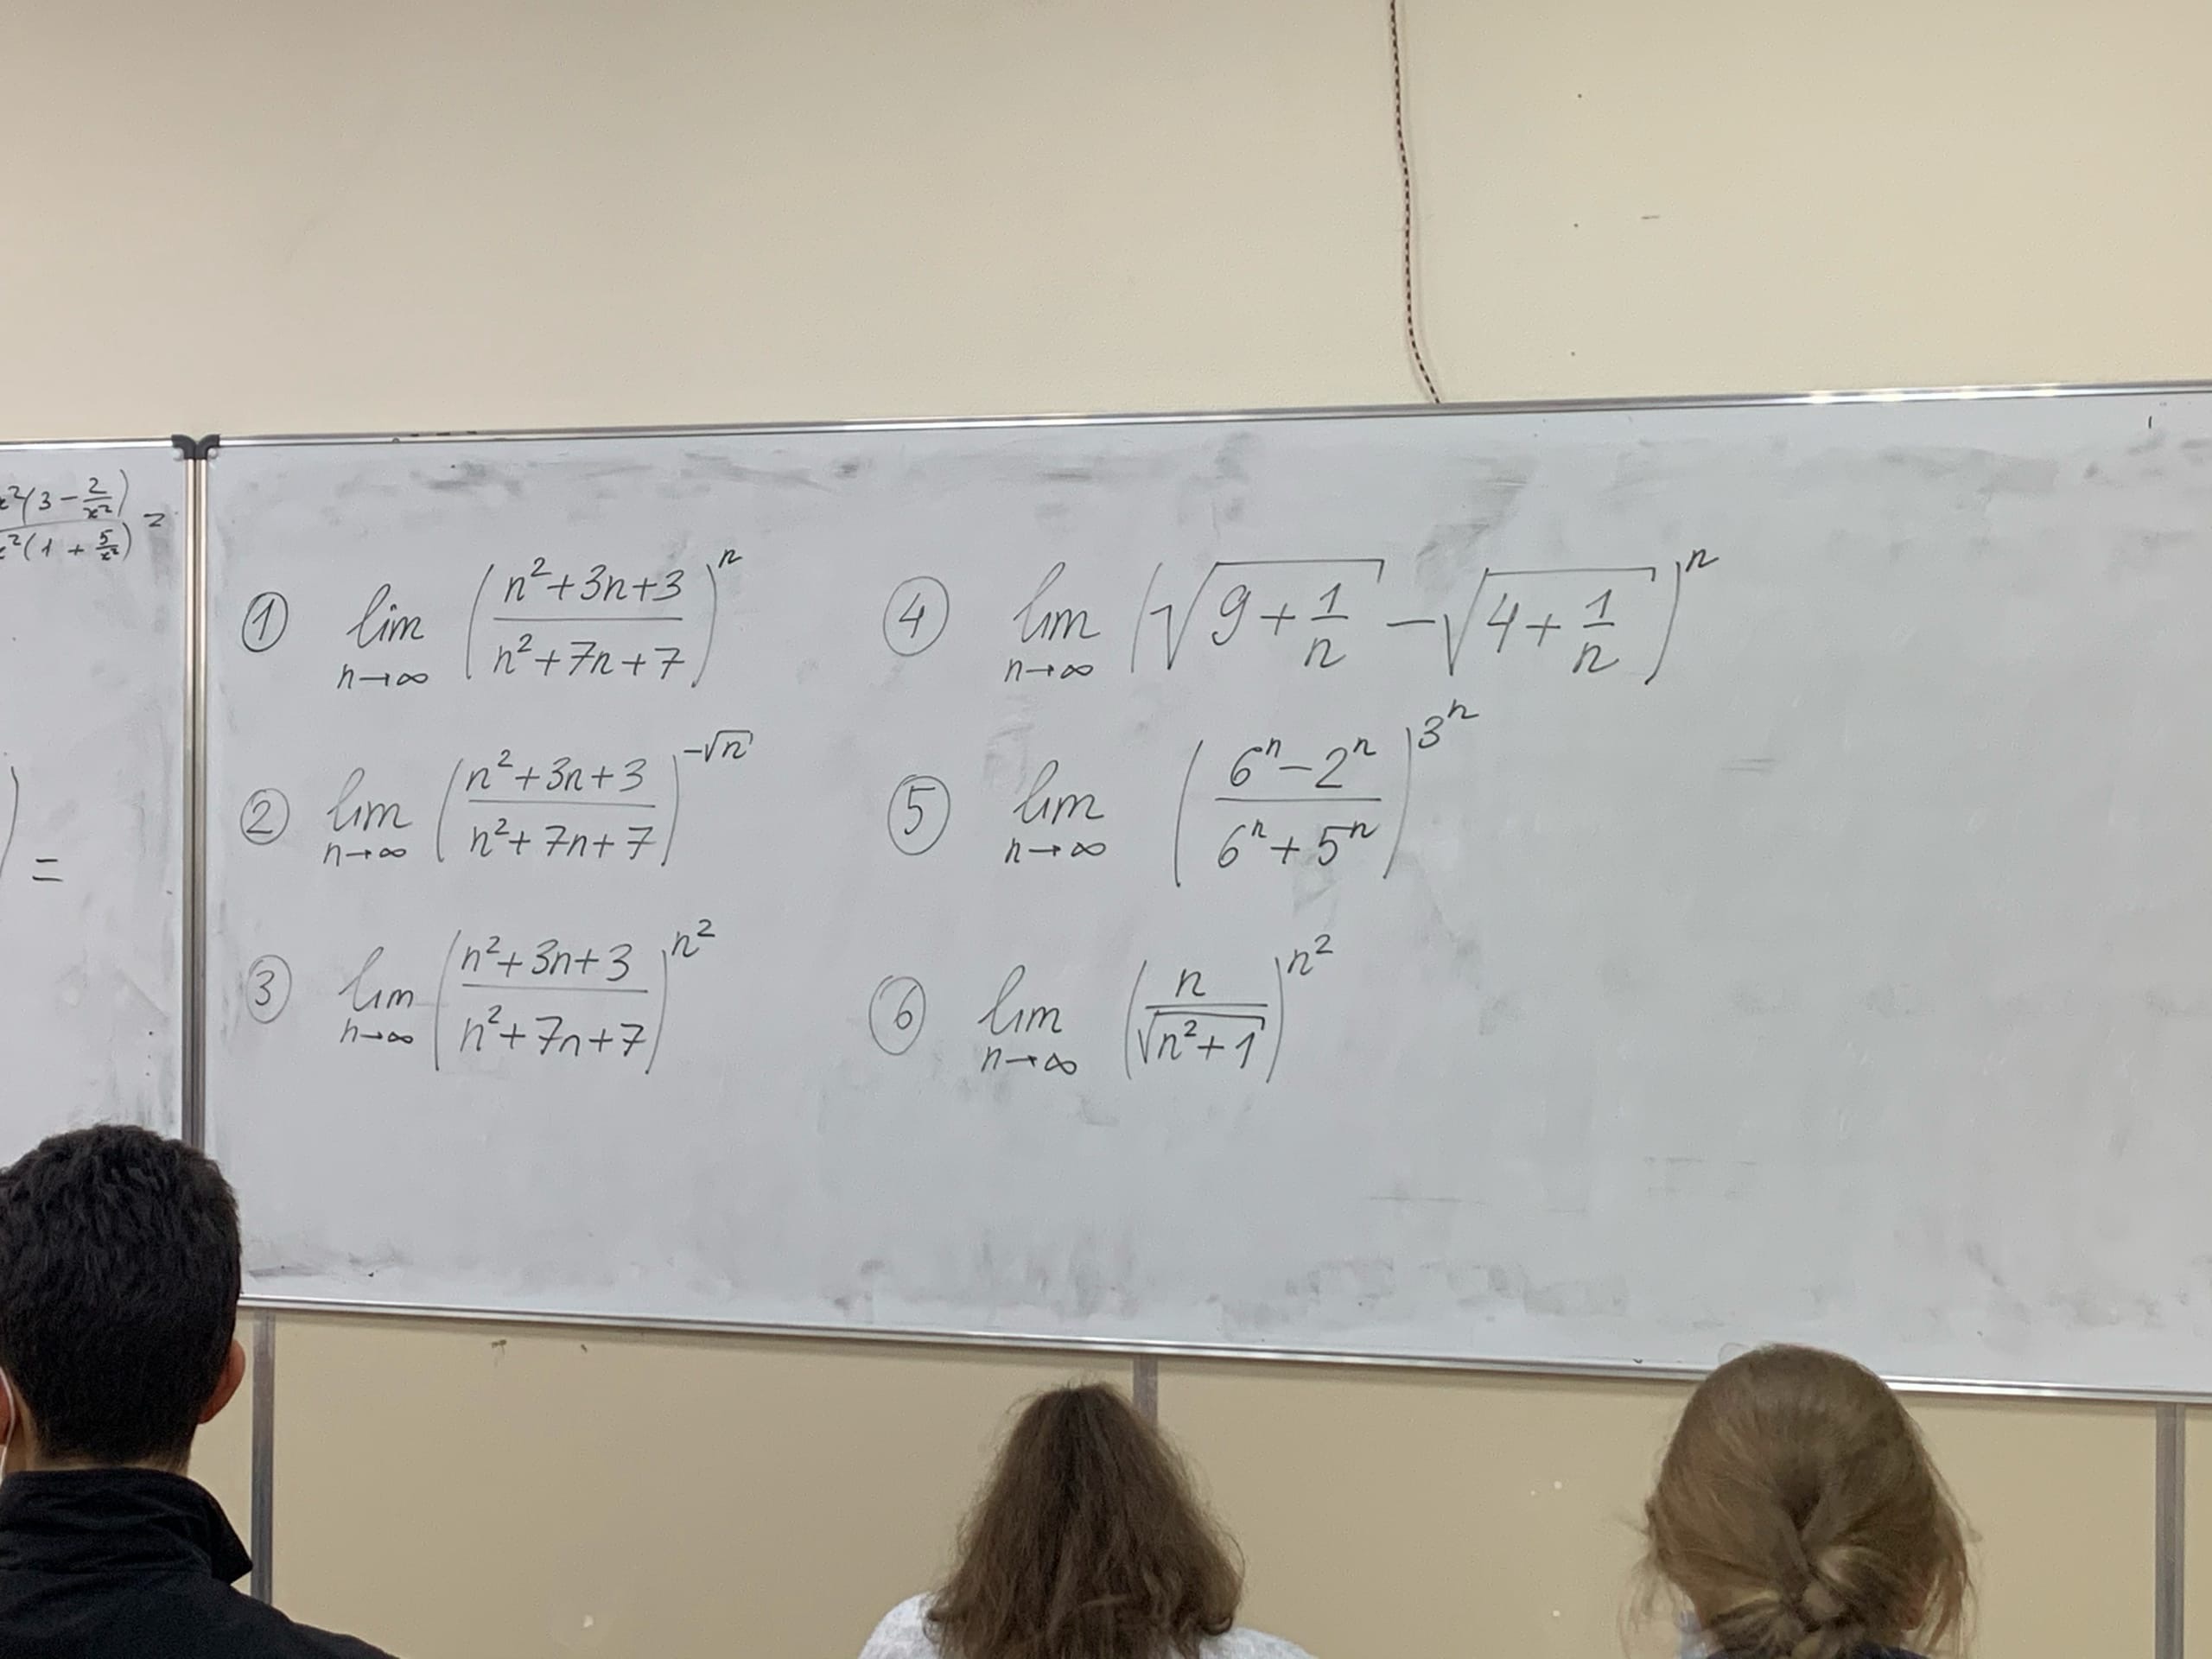 x²(3 - 2/x²)
x²(1 + 5/x²) =
) =
① lim n→∞ ((n²+3n+3)/(n²+7n+7))^n
② lim n→∞ ((n²+3n+3)/(n²+7n+7))^(-√n)
③ lim n→∞ ((n²+3n+3)/(n²+7n+7))^(n²)
④ lim n→∞ (√(9+1/n) - √(4+1/n))^n
⑤ lim n→∞ ((6^n-2^n)/(6^n+5^n))^(3^n)
⑥ lim n→∞ (n/√(n²+1))^(n²)